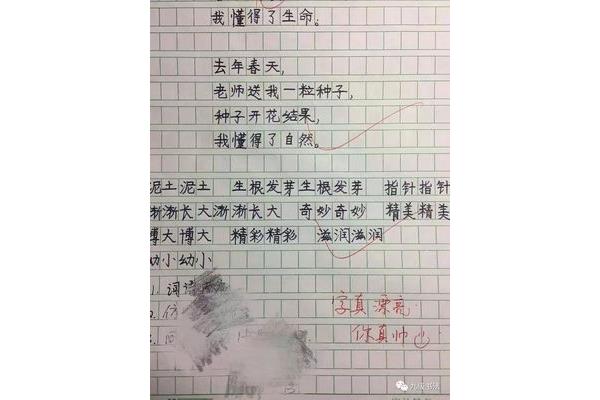 我懂得了生命。
去年春天,
老师送我一粒种子,
种子开花结果,
我懂得了自然。
泥土泥土 生根发芽生根发芽 指针指针
渐渐长大渐渐长大 奇妙奇妙 精美精美
博大博大 精彩精彩 滋润滋润
幼小幼小
1. 词语
2. 仿
字真漂亮
你真帅
九级书法